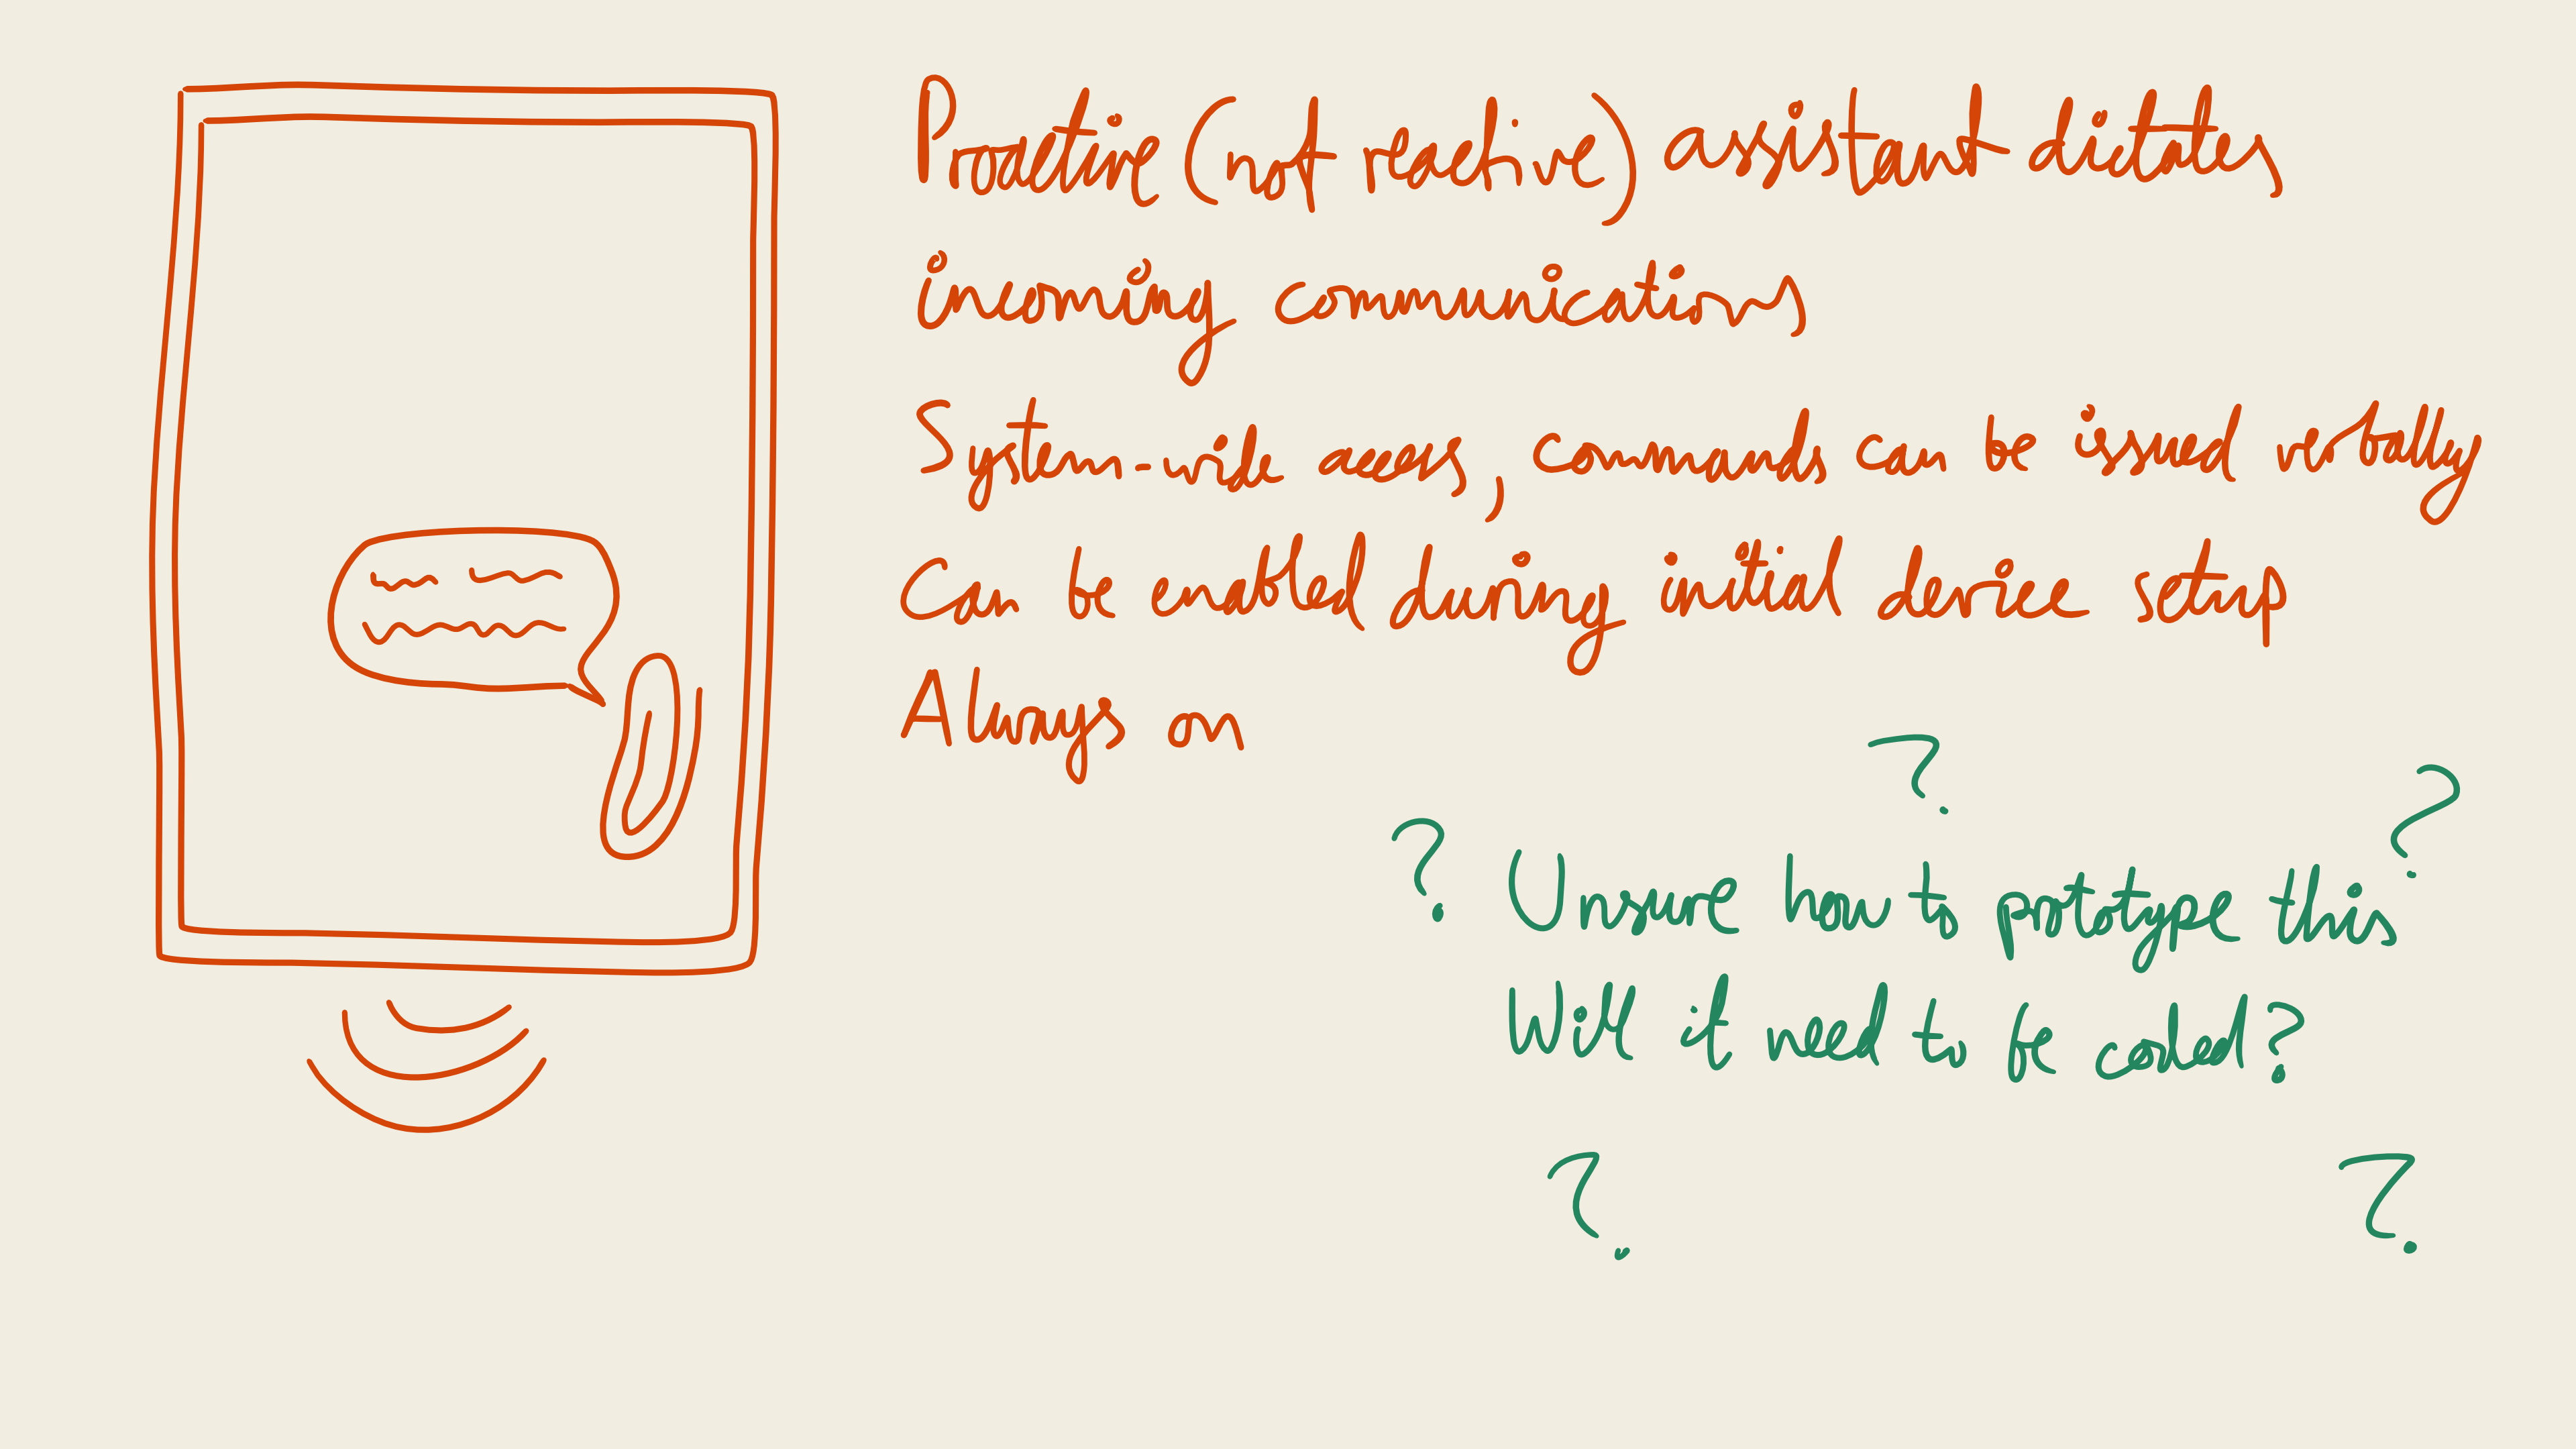 Proactive (not reactive) assistant dictates
incoming communications
System-wide access, commands can be issued verbally
Can be enabled during initial device setup
Always on
?
?
?
Unsure how to prototype this
Will it need to be coded?
?
?